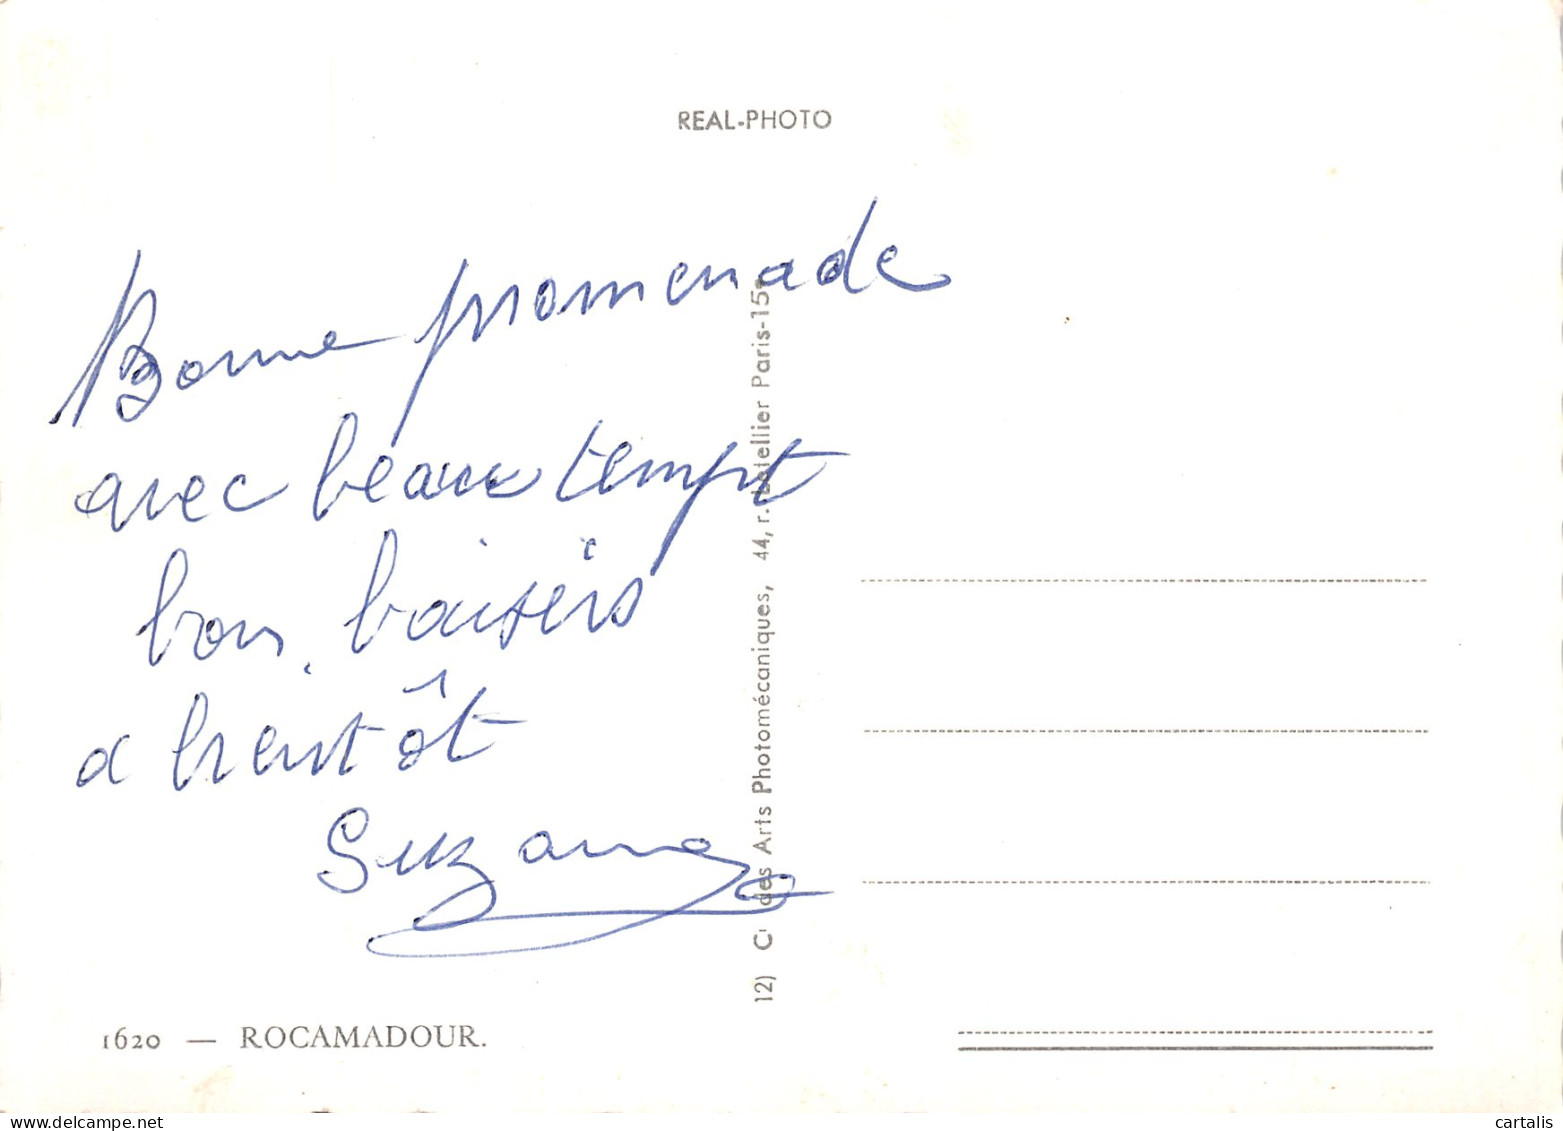 REAL-PHOTO
Bonne promenade
avec beau tempt
bon baisers
a bientôt
Suzanne
12) Cie des Arts Photomécaniques, 44, r. Letellier Paris-15e
1620 — ROCAMADOUR.
cartalis